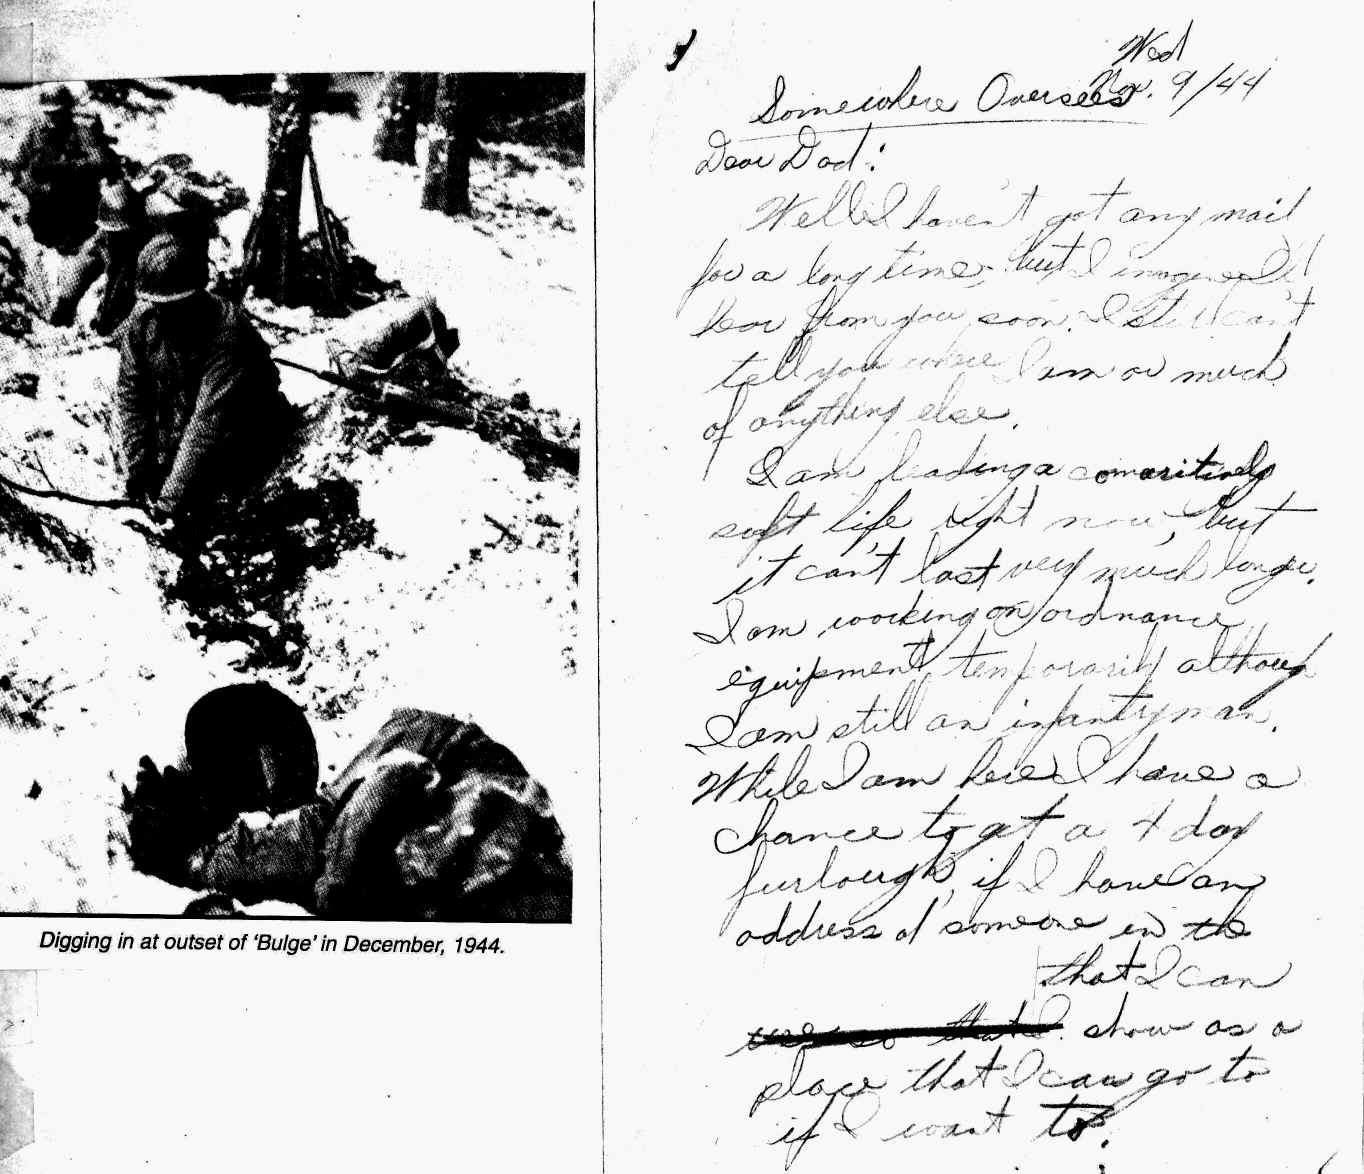 Digging in at outset of 'Bulge' in December, 1944.
Wed
Nov. 9/44
Somewhere Overseas
Dear Dad:
Well I haven't got any mail
for a long time, but I imagine I'll
hear from you soon. I still can't
tell you where I am or much
of anything else.
I am leading a comaritively
soft life right now, but
it can't last very much longer.
I am working on ordnance
equipment temporarily although
I am still an infantryman.
While I am here I have a
chance to get a 4 day
furlough, if I have any
address of someone in the
that I can
use so that I show as a
place that I can go to
if I want to.